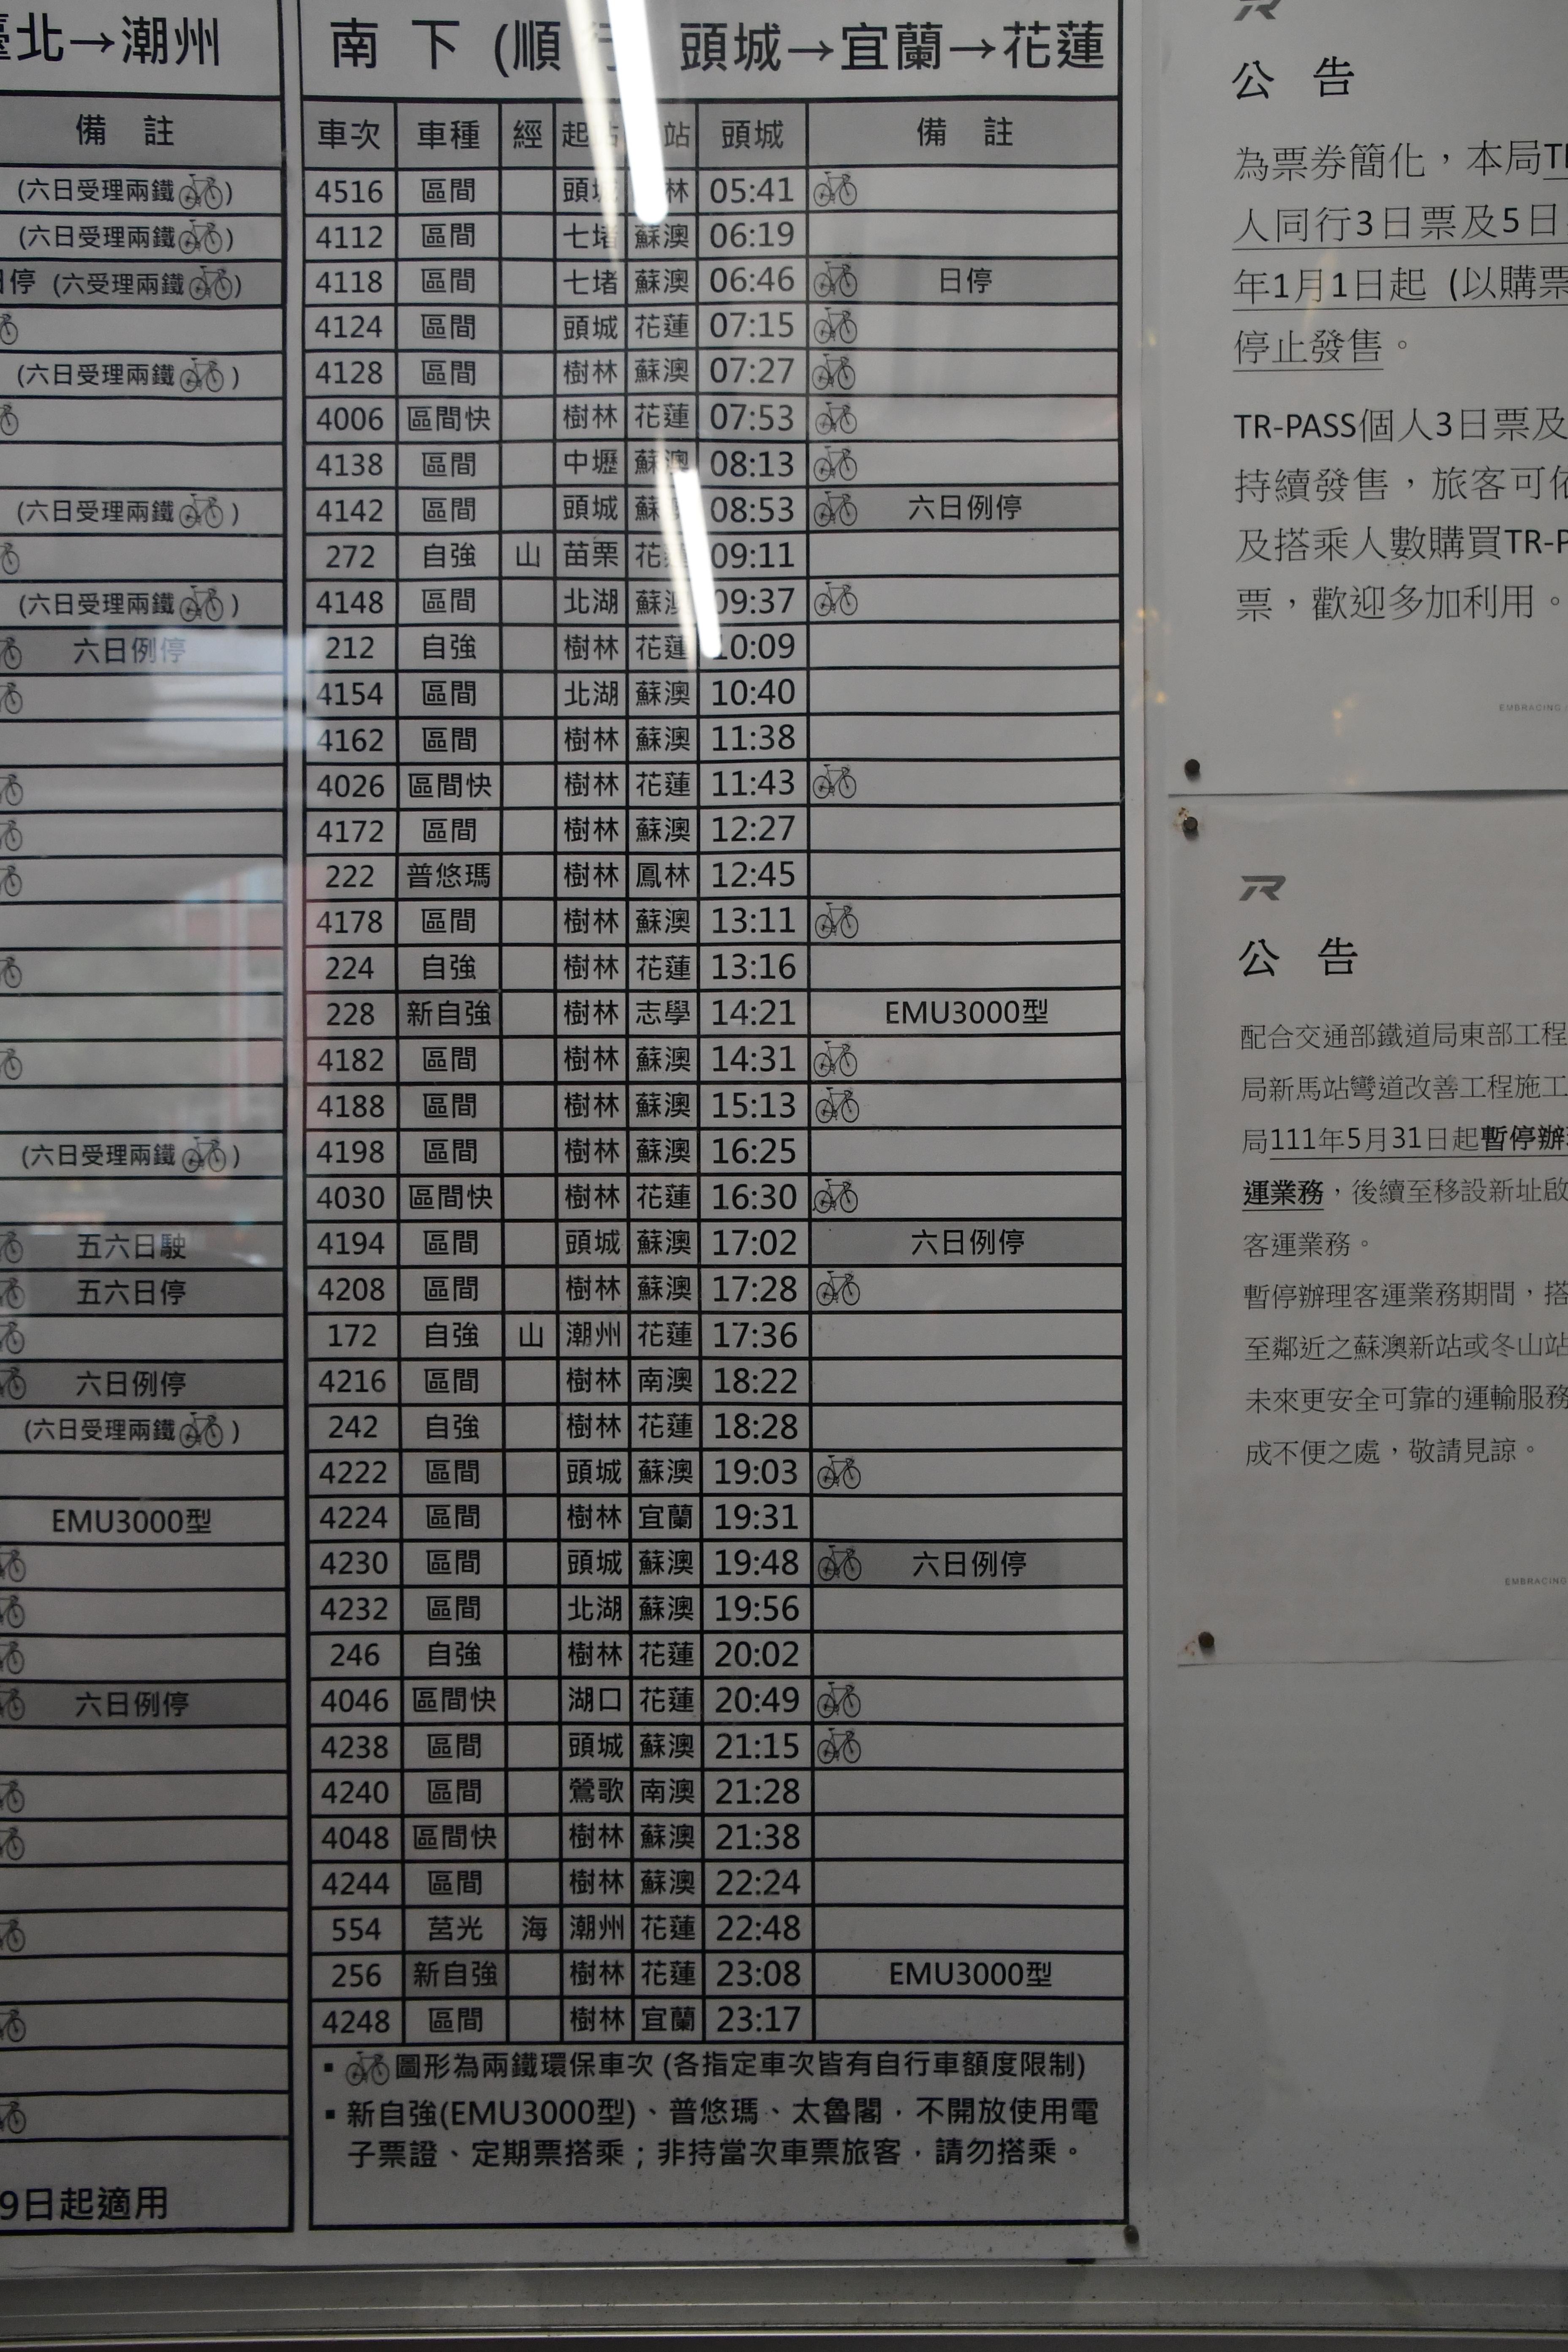 北→潮州
備 註
(六日受理兩鐵)
(六日受理兩鐵)
停 (六受理兩鐵)
(六日受理兩鐵)
(六日受理兩鐵)
(六日受理兩鐵)
六日例停
(六日受理兩鐵)
五六日駛
五六日停
六日例停
(六日受理兩鐵)
EMU3000型
六日例停
9日起適用
南 下 (順 頭城→宜蘭→花蓮
車次 車種 經 起 站 頭城 備 註
4516 區間 頭城 林 05:41
4112 區間 七堵 蘇澳 06:19
4118 區間 七堵 蘇澳 06:46 日停
4124 區間 頭城 花蓮 07:15
4128 區間 樹林 蘇澳 07:27
4006 區間快 樹林 花蓮 07:53
4138 區間 中壢 蘇澳 08:13
4142 區間 頭城 蘇 08:53 六日例停
272 自強 山 苗栗 花 09:11
4148 區間 北湖 蘇澳 09:37
212 自強 樹林 花蓮 10:09
4154 區間 北湖 蘇澳 10:40
4162 區間 樹林 蘇澳 11:38
4026 區間快 樹林 花蓮 11:43
4172 區間 樹林 蘇澳 12:27
222 普悠瑪 樹林 鳳林 12:45
4178 區間 樹林 蘇澳 13:11
224 自強 樹林 花蓮 13:16
228 新自強 樹林 志學 14:21 EMU3000型
4182 區間 樹林 蘇澳 14:31
4188 區間 樹林 蘇澳 15:13
4198 區間 樹林 蘇澳 16:25
4030 區間快 樹林 花蓮 16:30
4194 區間 頭城 蘇澳 17:02 六日例停
4208 區間 樹林 蘇澳 17:28
172 自強 山 潮州 花蓮 17:36
4216 區間 樹林 南澳 18:22
242 自強 樹林 花蓮 18:28
4222 區間 頭城 蘇澳 19:03
4224 區間 樹林 宜蘭 19:31
4230 區間 頭城 蘇澳 19:48 六日例停
4232 區間 北湖 蘇澳 19:56
246 自強 樹林 花蓮 20:02
4046 區間快 湖口 花蓮 20:49
4238 區間 頭城 蘇澳 21:15
4240 區間 鶯歌 南澳 21:28
4048 區間快 樹林 蘇澳 21:38
4244 區間 樹林 蘇澳 22:24
554 莒光 海 潮州 花蓮 22:48
256 新自強 樹林 花蓮 23:08 EMU3000型
4248 區間 樹林 宜蘭 23:17
▪ 圖形為兩鐵環保車次 (各指定車次皆有自行車額度限制)
▪ 新自強(EMU3000型)、普悠瑪、太魯閣，不開放使用電
子票證、定期票搭乘；非持當次車票旅客，請勿搭乘。
公 告
為票券簡化，本局T
人同行3日票及5日
年1月1日起 (以購票
停止發售。
TR-PASS個人3日票及
持續發售，旅客可依
及搭乘人數購買TR-P
票，歡迎多加利用。
EMBRACING
公 告
配合交通部鐵道局東部工程
局新馬站彎道改善工程施工
局111年5月31日起暫停辦
運業務，後續至移設新址啟
客運業務。
暫停辦理客運業務期間，搭
至鄰近之蘇澳新站或冬山站
未來更安全可靠的運輸服務
成不便之處，敬請見諒。
EMBRACING